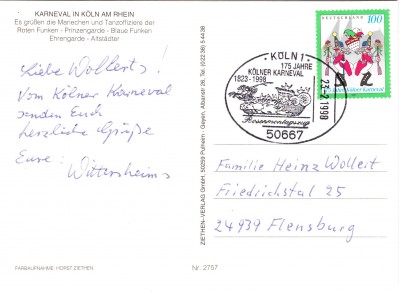 KARNEVAL IN KÖLN AM RHEIN
Es grüßen die Mariechen und Tanzoffiziere der
Roten Funken - Prinzengarde - Blaue Funken
Ehrengarde - Altstädter
Liebe Wollerts!
Vom Kölner Karneval
senden Euch
herzliche Grüße
Eure: Wittersheims
FARBAUFNAHME HORST ZIETHEN
Nr. 2757
ZIETHEN-VERLAG GmbH, 50259 Pulheim
KÖLN 1
175 JAHRE
KÖLNER KARNEVAL
1823-1998
Rosenmontagszug
50667
23-2.1998
DEUTSCHLAND 100
Kölner Karneval
Familie Heinz Wollert
Friedrichstal 25
24939 Flensburg